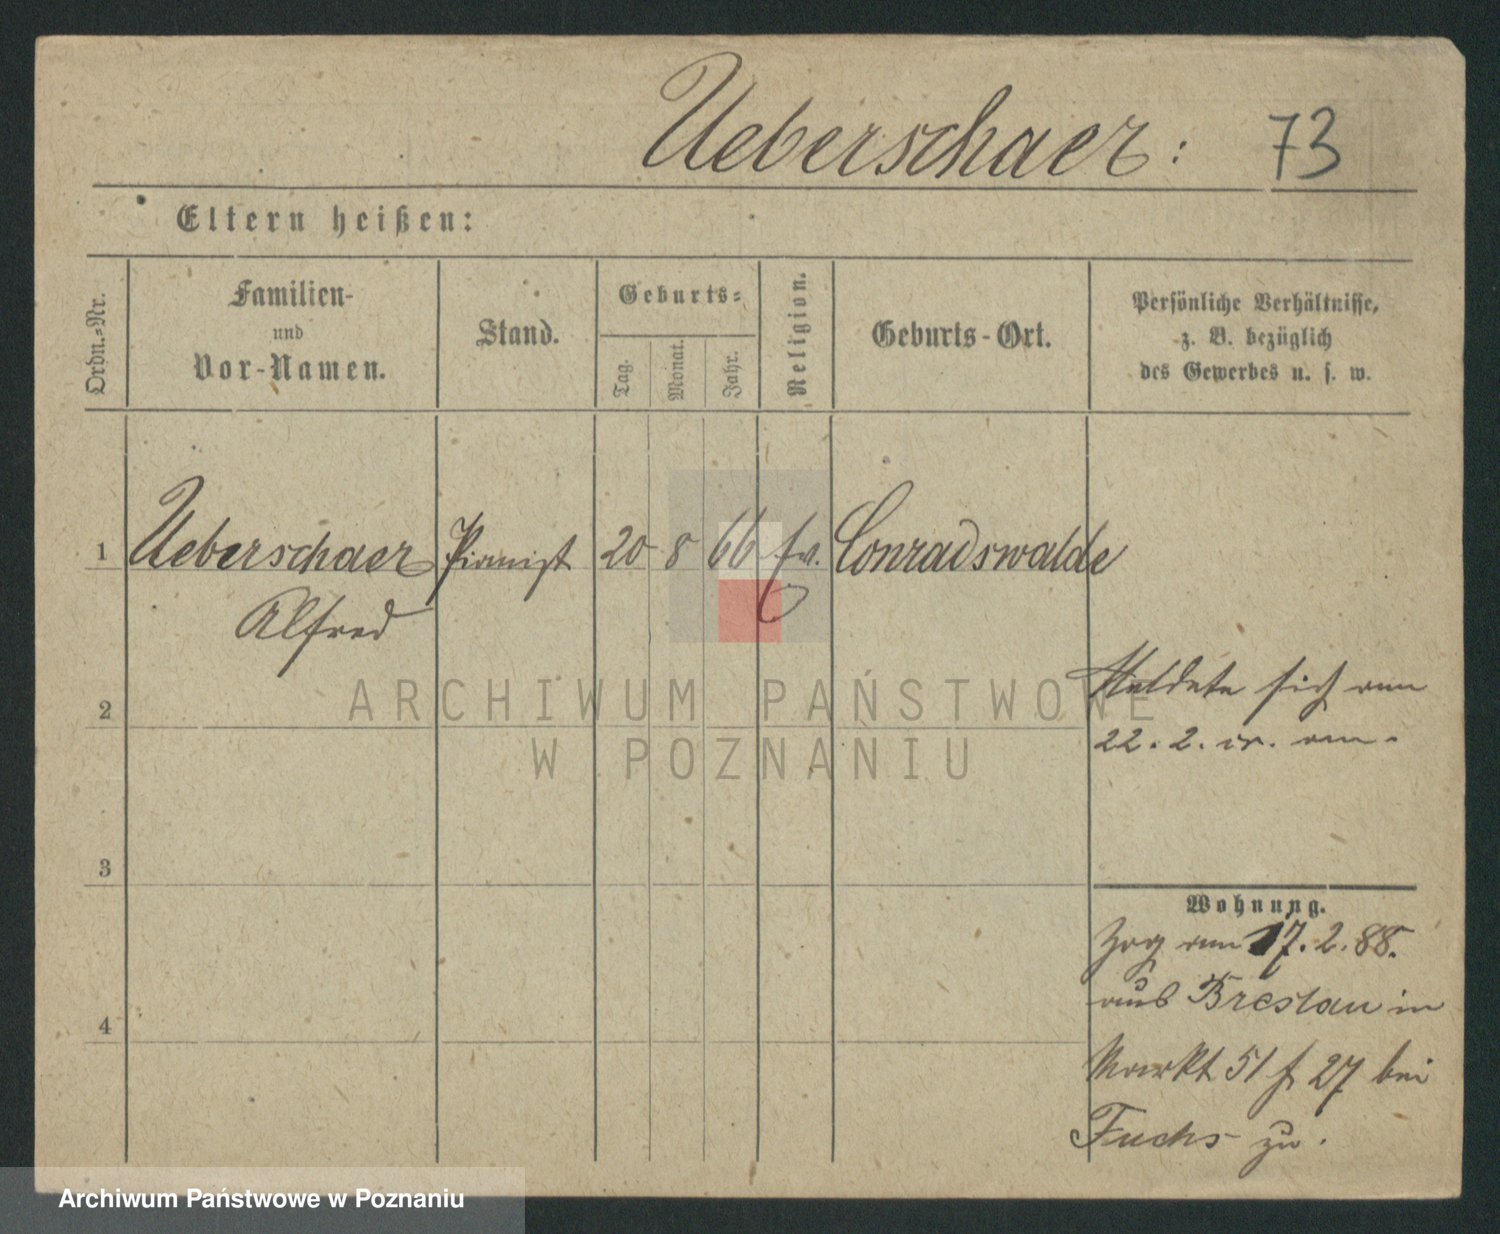 Ueberschaer: 73
Eltern heißen:
Ordn.-Nr.
Familien-
und
Vor-Namen.
Stand.
Geburts-
Tag.
Monat.
Jahr.
Religion.
Geburts-Ort.
Persönliche Verhältnisse,
z. B. bezüglich
des Gewerbes u. s. w.
1 Ueberschaer Pianist 20 8 66 ev. Conradswalde
Alfred
Meldete sich am
22. 2. cr. an.
2
3
4
ARCHIWUM PAŃSTWOWE
W POZNANIU
Wohnung.
Zog am 17. 2. 88.
aus Breslau in
Markt 51 f 27 bei
Fuchs zu.
Archiwum Państwowe w Poznaniu